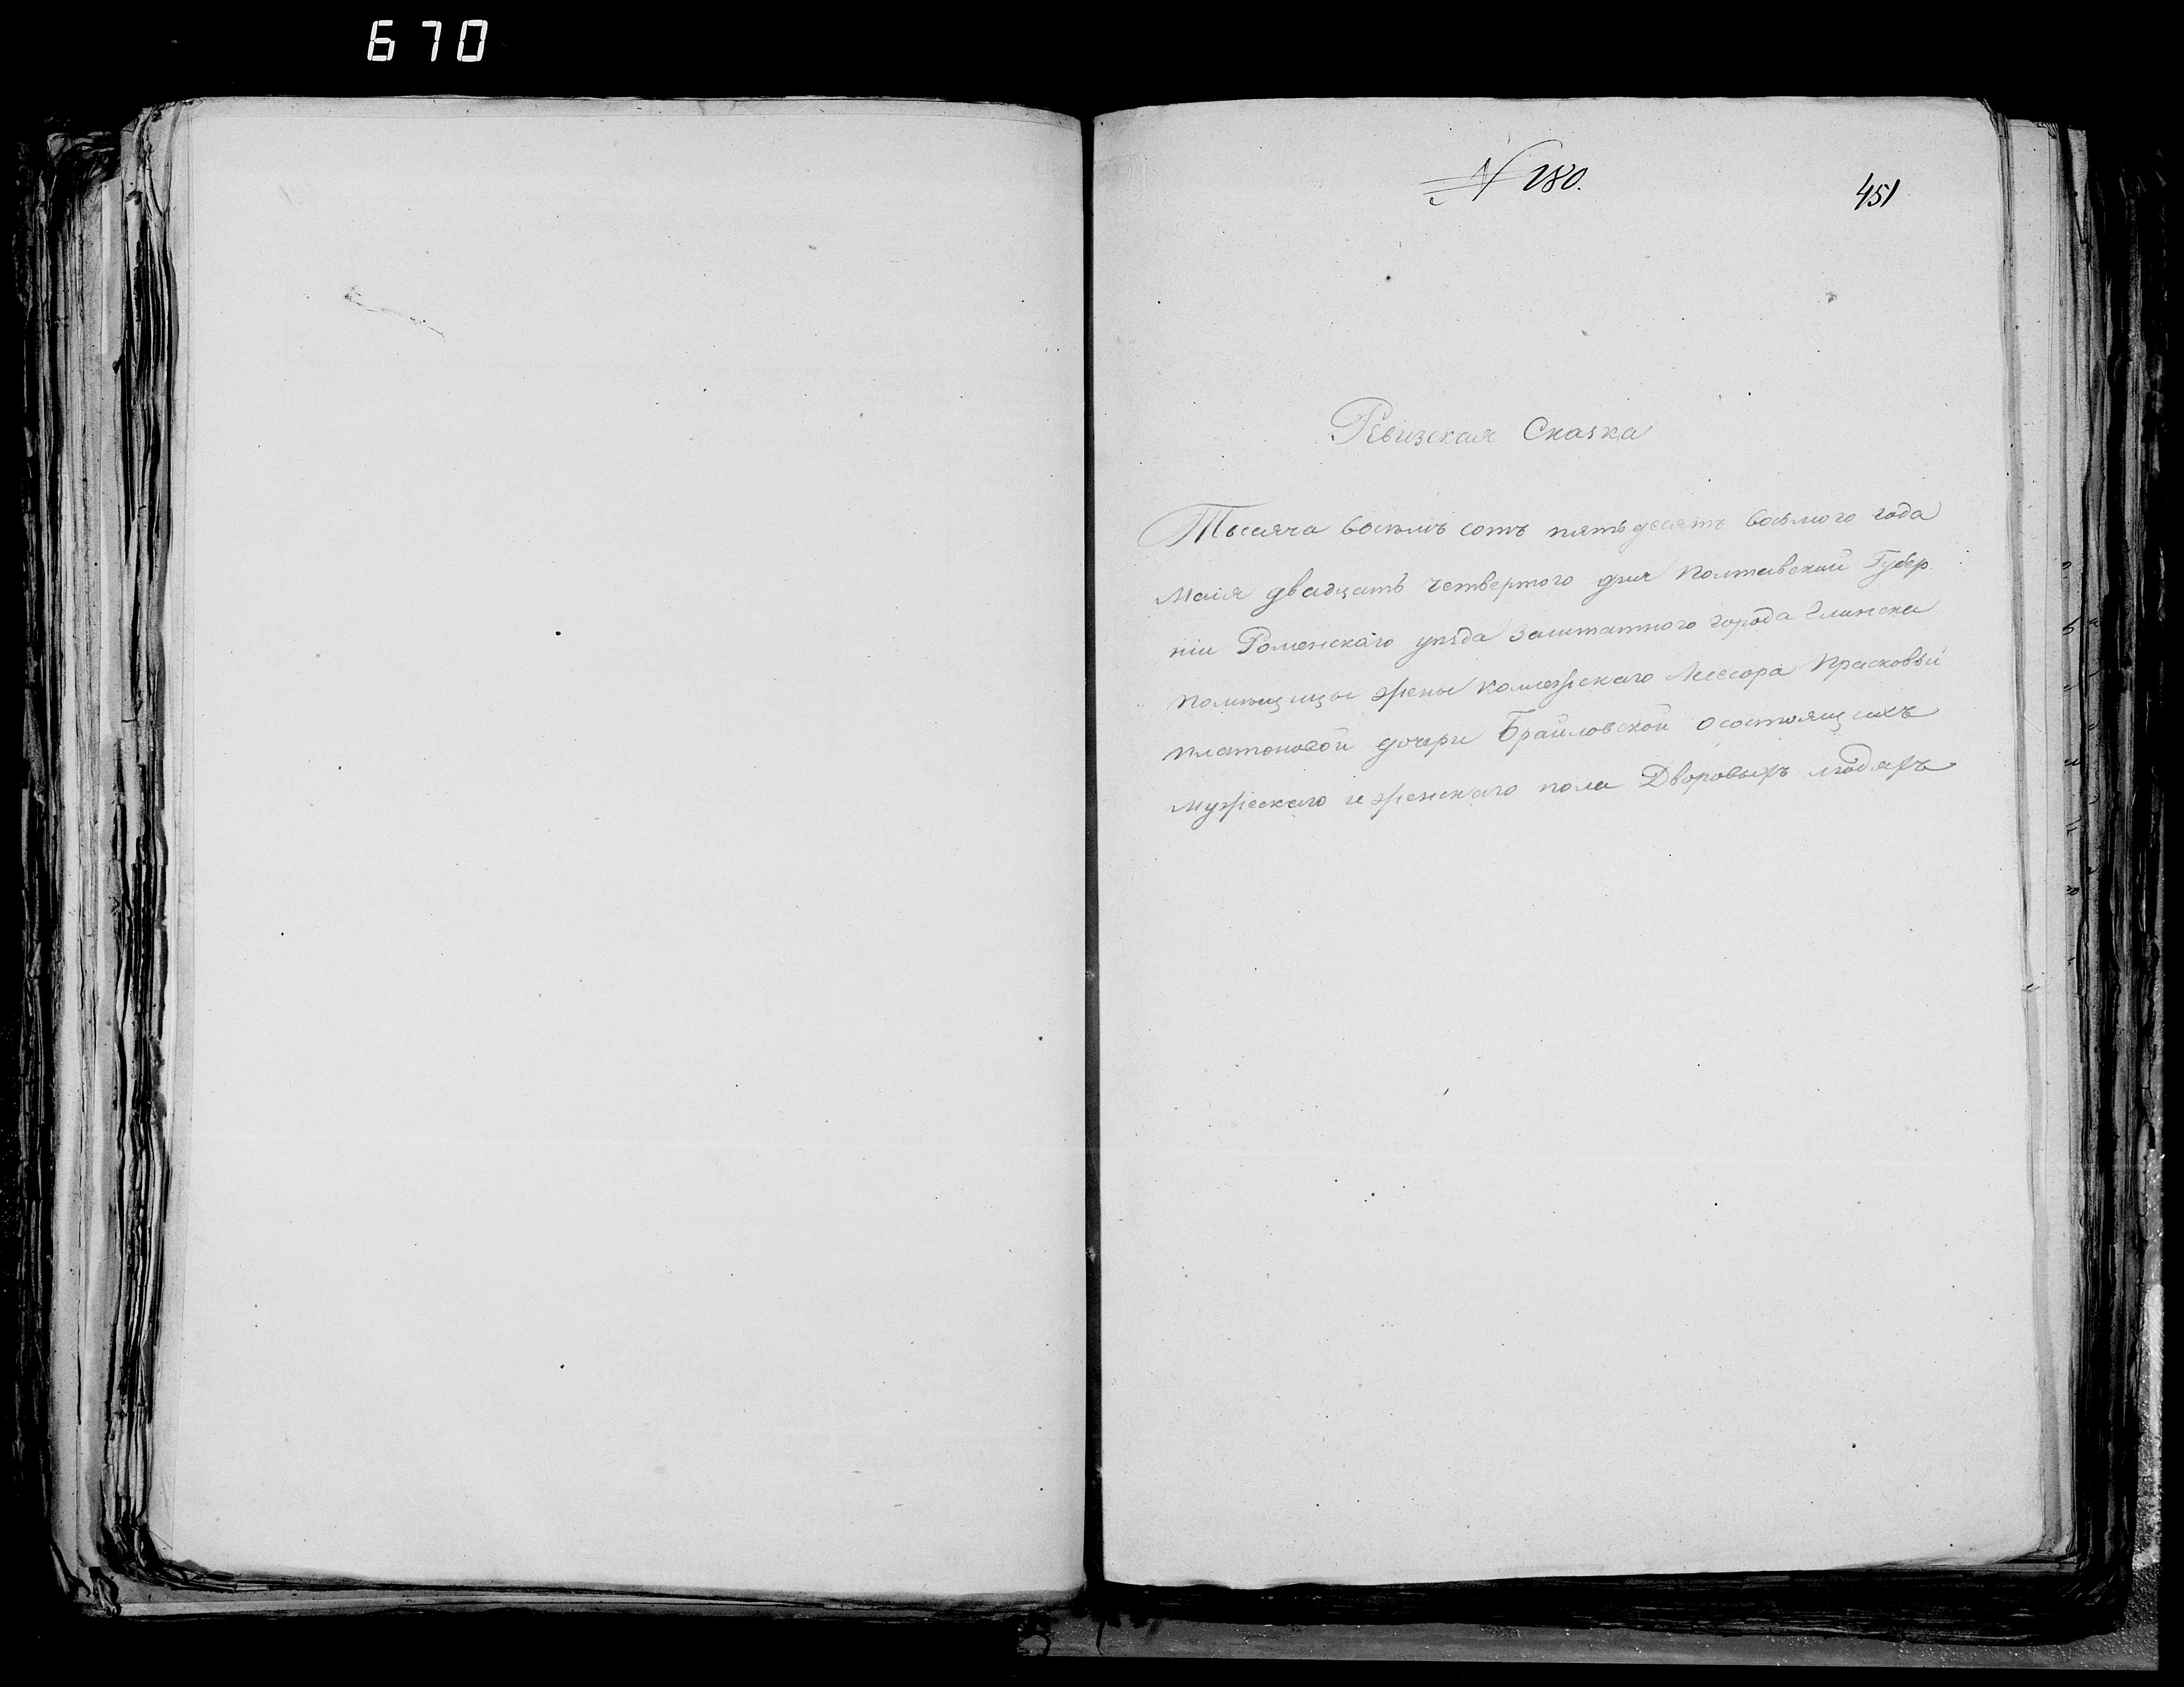 670
№ 180.
451
Ревизская Сказка
Тысяча восемъ сотъ пятьдесятъ восьмого года
Маія двадцать четвертого дня Полтавской Губер
ніи Роменскаго уезда Заштатного города Глинска
Помещицы жены Коллежскаго Асессора Прасковьи
Платоновой дочери Брайловской о состоящихъ
мужескаго и женскаго пола Дворовыхъ людяхъ